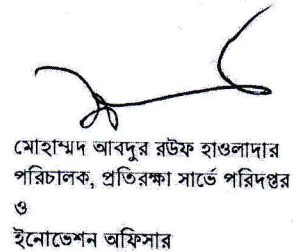 মোহাম্মদ আবদুর রউফ হাওলাদার
পরিচালক, প্রতিরক্ষা সার্ভে পরিদপ্তর
ও
ইনোভেশন অফিসার